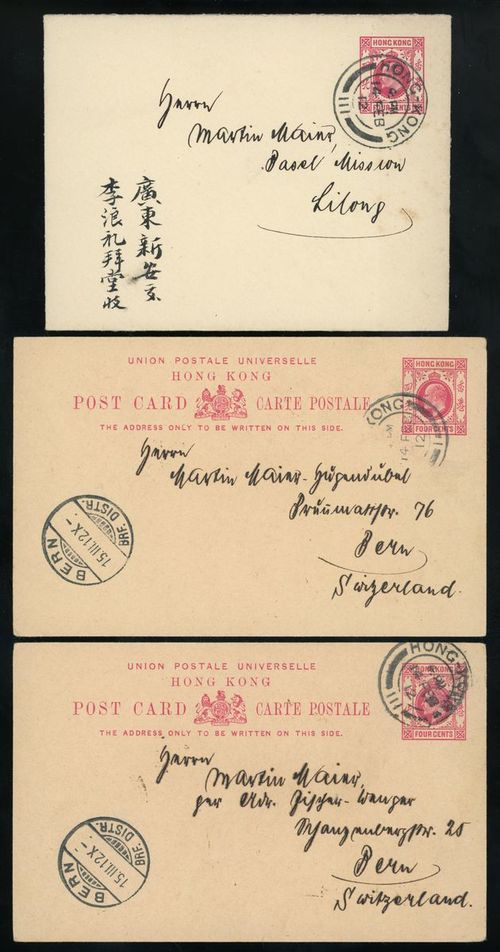 HONG KONG
FOUR CENTS
HONG-KONG
FEB
12
Herrn
Martin Maier,
Basel Mission
Lilong
廣東新安
李浪礼拜堂收
UNION POSTALE UNIVERSELLE
HONG KONG
POST CARD CARTE POSTALE
THE ADDRESS ONLY TO BE WRITTEN ON THIS SIDE.
HONG KONG
FOUR CENTS
KONG
14 F
12
Herrn
Martin Maier-Hugendubel
76
Bern
Switzerland.
BERN
15.III.12.X-
BRF. DISTR.
UNION POSTALE UNIVERSELLE
HONG KONG
POST CARD CARTE POSTALE
THE ADDRESS ONLY TO BE WRITTEN ON THIS SIDE.
HONG
FOUR CENTS
Herrn
Martin Maier,
per Adr. Fischer-Wenger
Schanzenbergstr. 25
Bern
Switzerland.
BERN
15.III.12.X-
BRF. DISTR.